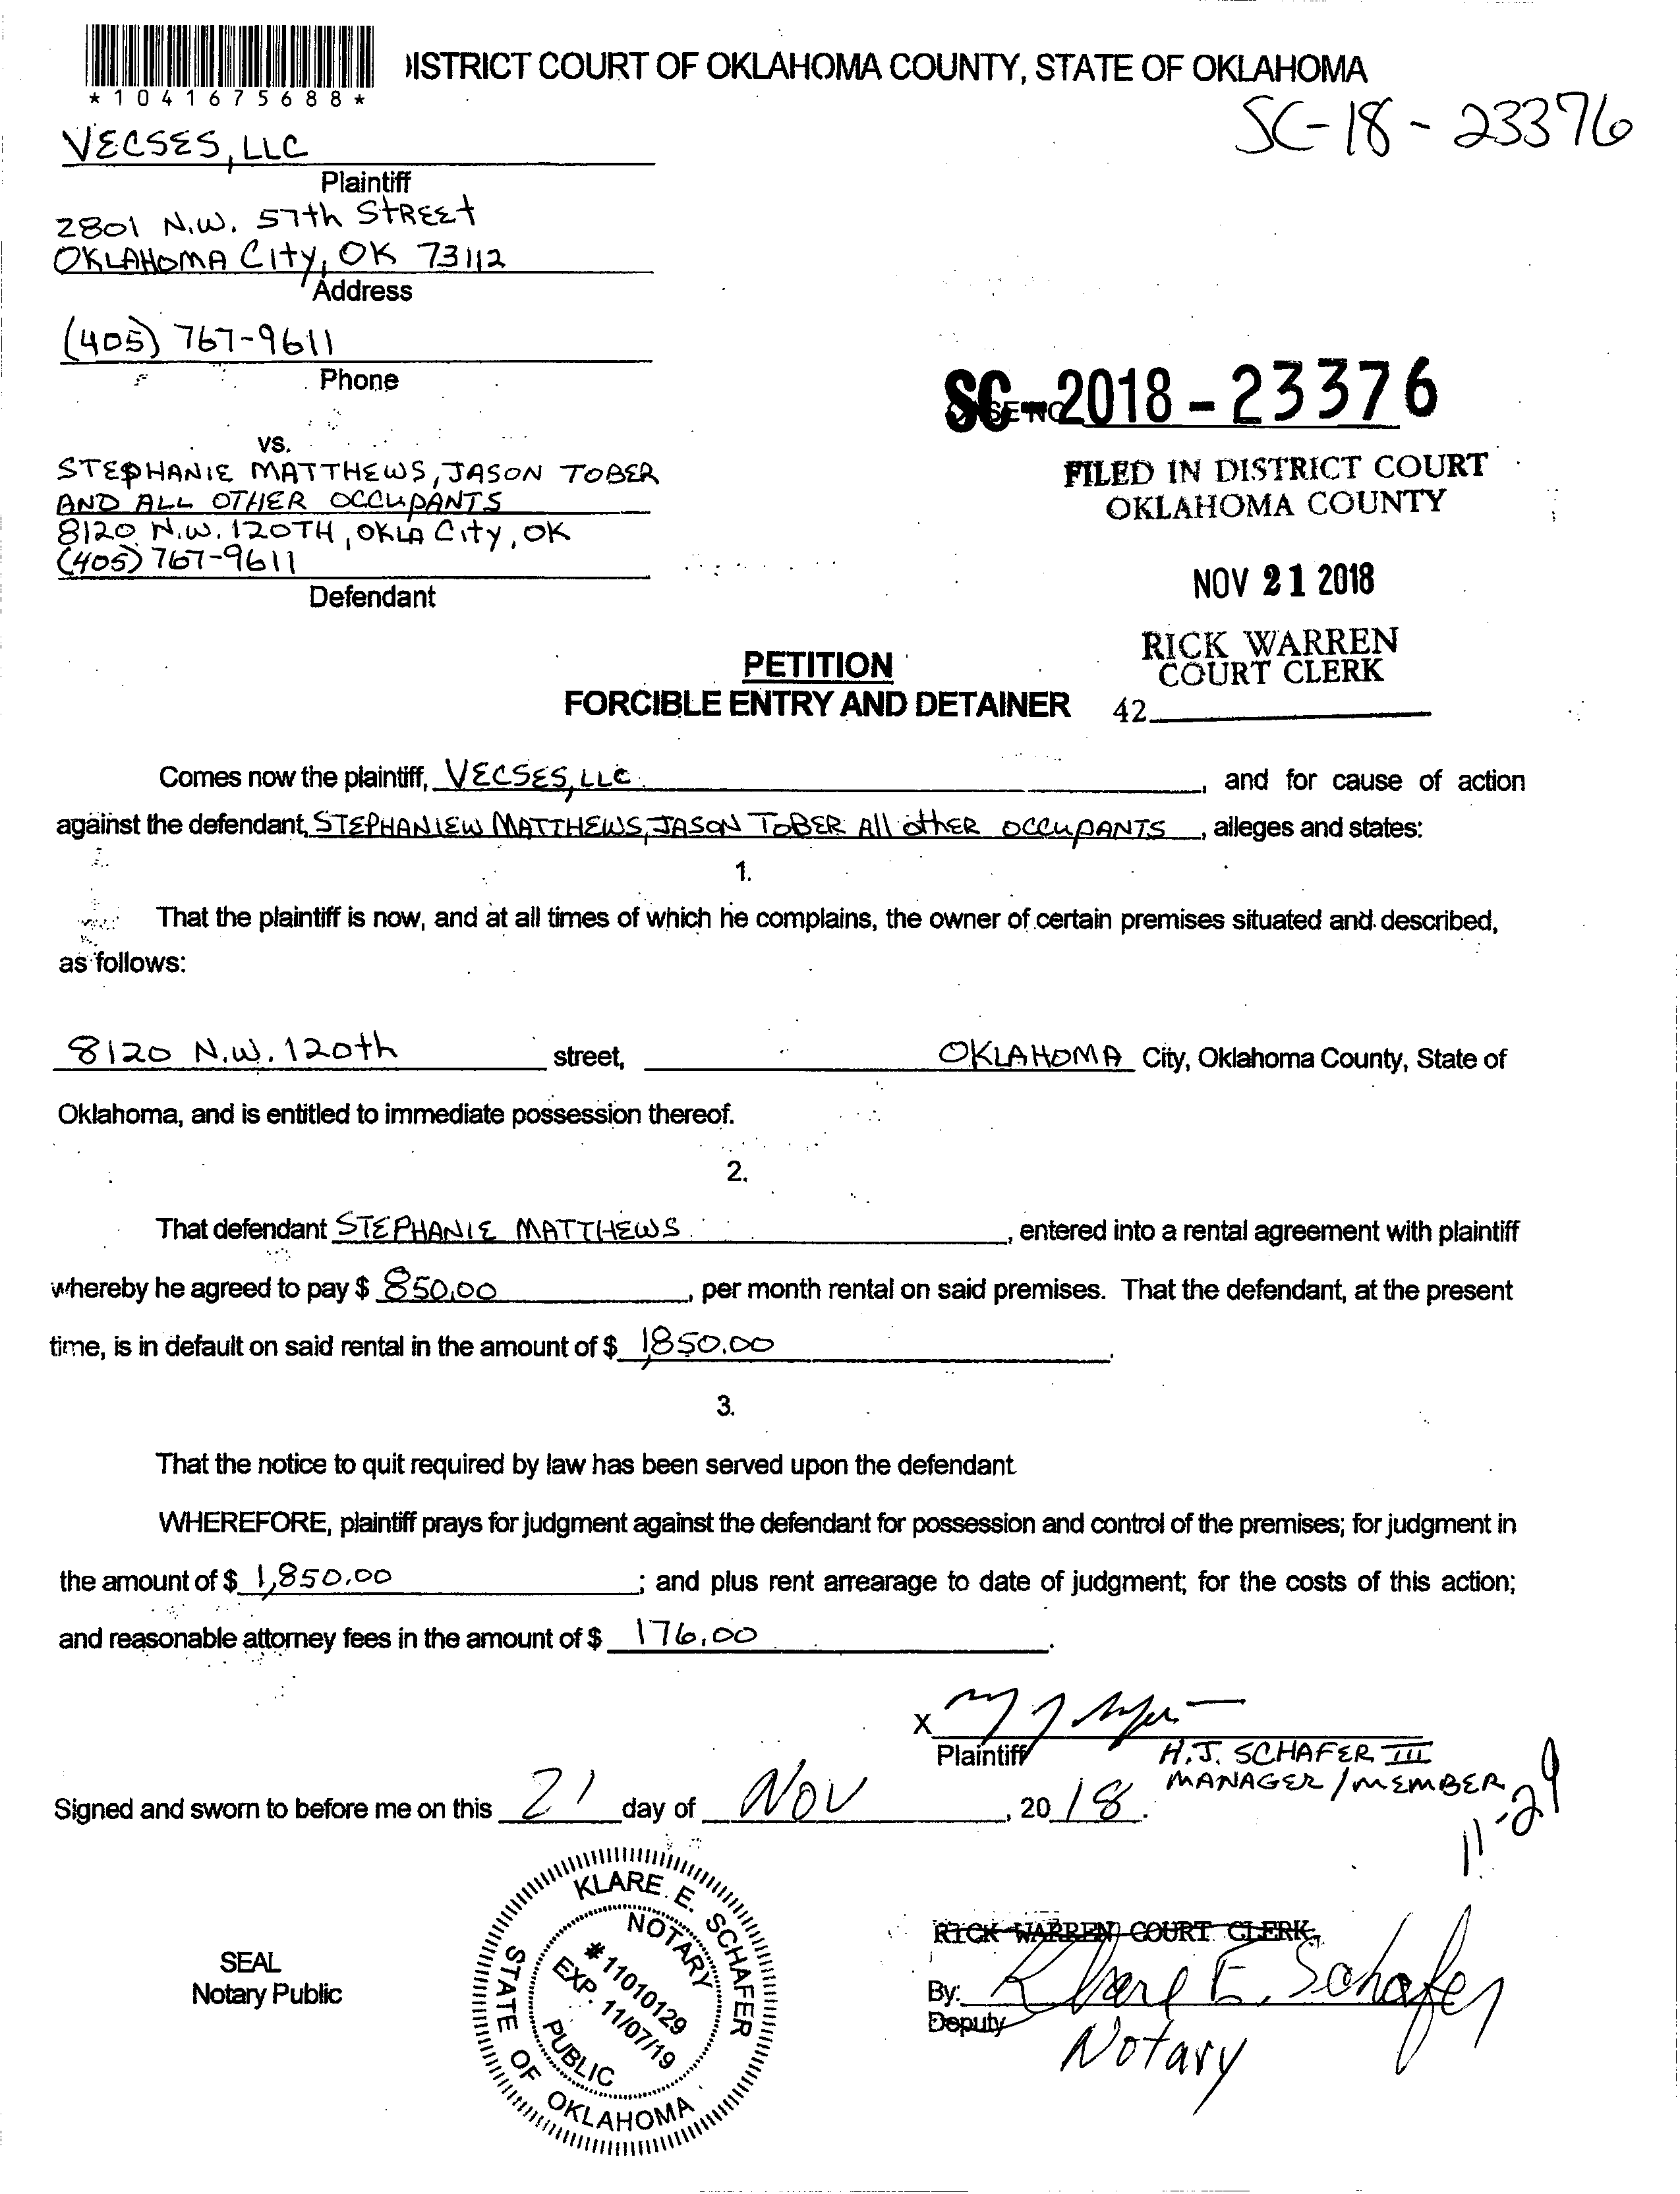 ISTRICT COURT OF OKLAHOMA COUNTY, STATE OF OKLAHOMA
*1041675688*
SC-18-23376
VECSES, LLC
Plaintiff
2801 N.W. 57th STREEt
OKLAHOMA City, OK 73112
Address
(405) 767-9611
Phone
SC-2018-23376
vs.
STEPHANIE MATTHEWS, JASON TOBER
AND ALL OTHER OCCUPANTS
8120 N.W. 120TH, OKLA City, OK
(405) 767-9611
Defendant
FILED IN DISTRICT COURT
OKLAHOMA COUNTY
NOV 21 2018
RICK WARREN
COURT CLERK
42
PETITION
FORCIBLE ENTRY AND DETAINER
Comes now the plaintiff, VECSES, LLC, and for cause of action
against the defendant, STEPHANIEW MATTHEWS, JASON TOBER All otHER OCCUPANTS, alleges and states:
1.
That the plaintiff is now, and at all times of which he complains, the owner of certain premises situated and described,
as follows:
8120 N.W. 120th street, OKLAHOMA City, Oklahoma County, State of
Oklahoma, and is entitled to immediate possession thereof.
2.
That defendant STEPHANIE MATTHEWS, entered into a rental agreement with plaintiff
whereby he agreed to pay $ 850.00, per month rental on said premises. That the defendant, at the present
time, is in default on said rental in the amount of $ 1,850.00.
3.
That the notice to quit required by law has been served upon the defendant
WHEREFORE, plaintiff prays for judgment against the defendant for possession and control of the premises; for judgment in
the amount of $ 1,850.00; and plus rent arrearage to date of judgment; for the costs of this action;
and reasonable attorney fees in the amount of $ 176.00.
X
Plaintiff
H.J. SCHAFER III
MANAGER/MEMBER
11-29
Signed and sworn to before me on this 21 day of Nov, 2018.
SEAL
Notary Public
KLARE E. SCHAFER
NOTARY
#11010129
EXP. 11/07/19
PUBLIC
STATE OF OKLAHOMA
RICK WARREN COURT CLERK
By: Klare E. Schafer
Deputy
Notary